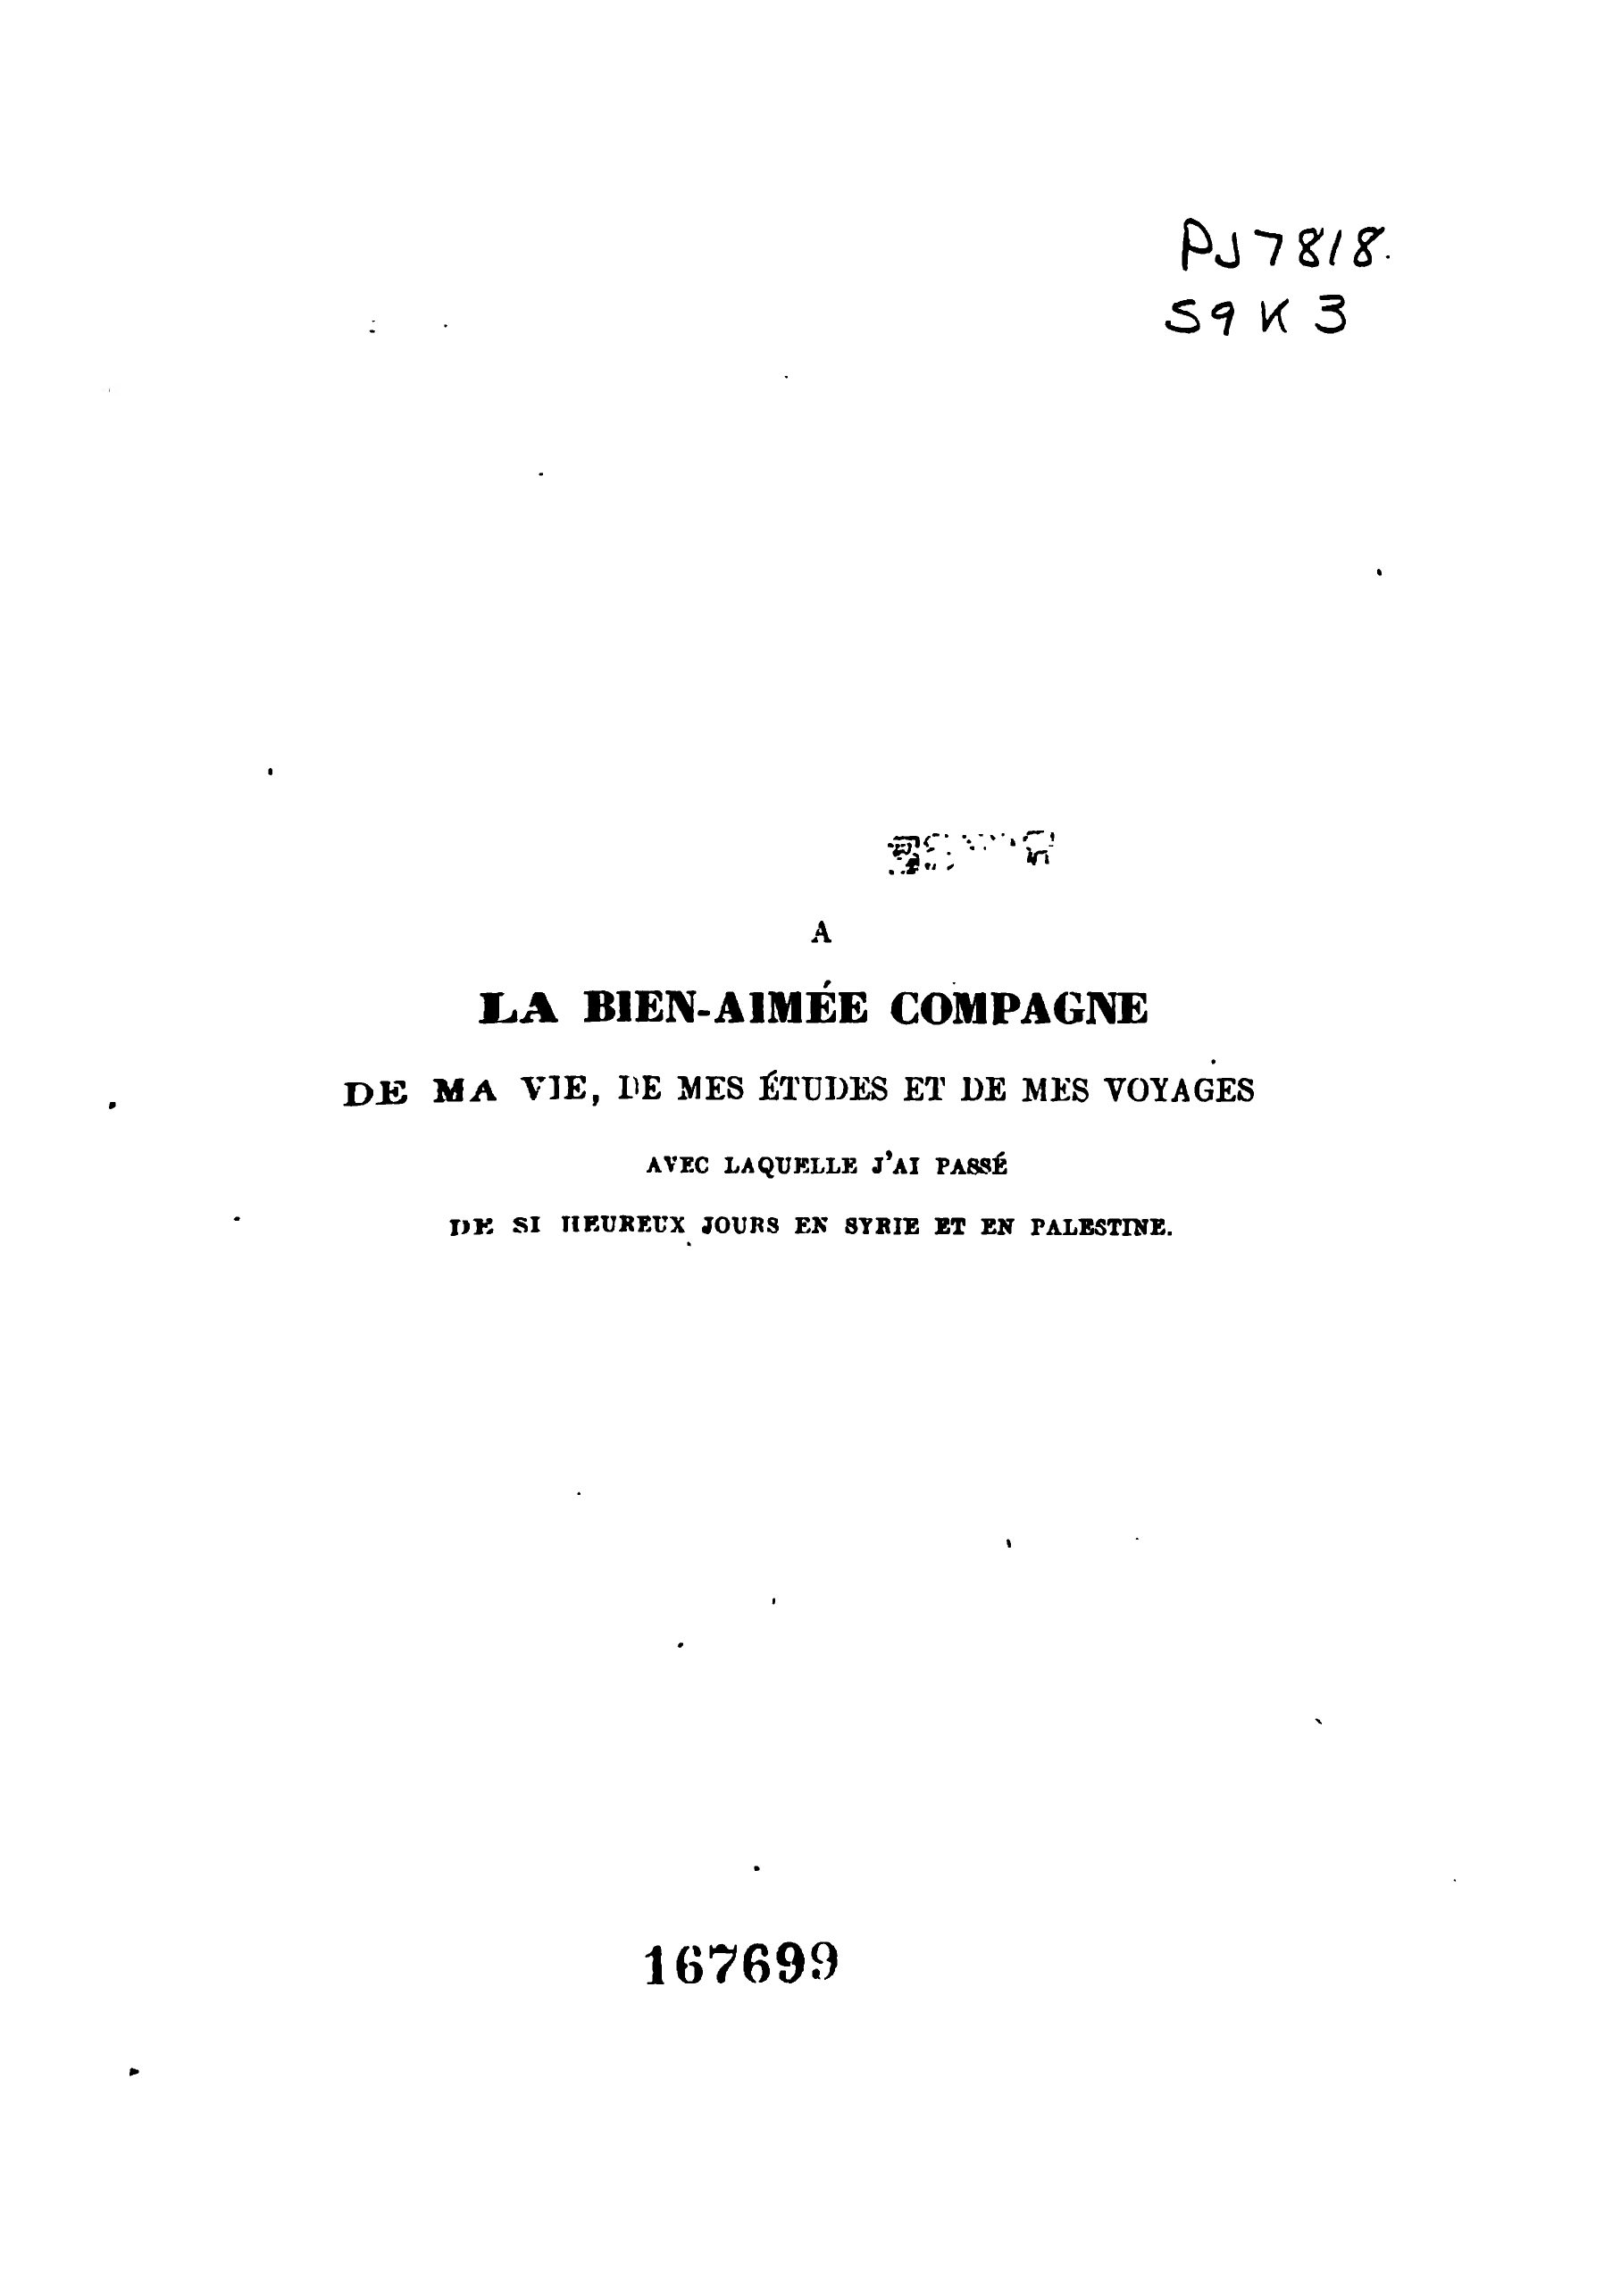 PJ7818.
S9K3
A
LA BIEN-AIMÉE COMPAGNE
DE MA VIE, DE MES ÉTUDES ET DE MES VOYAGES
AVEC LAQUELLE J'AI PASSÉ
DE SI HEUREUX JOURS EN SYRIE ET EN PALESTINE.
167699